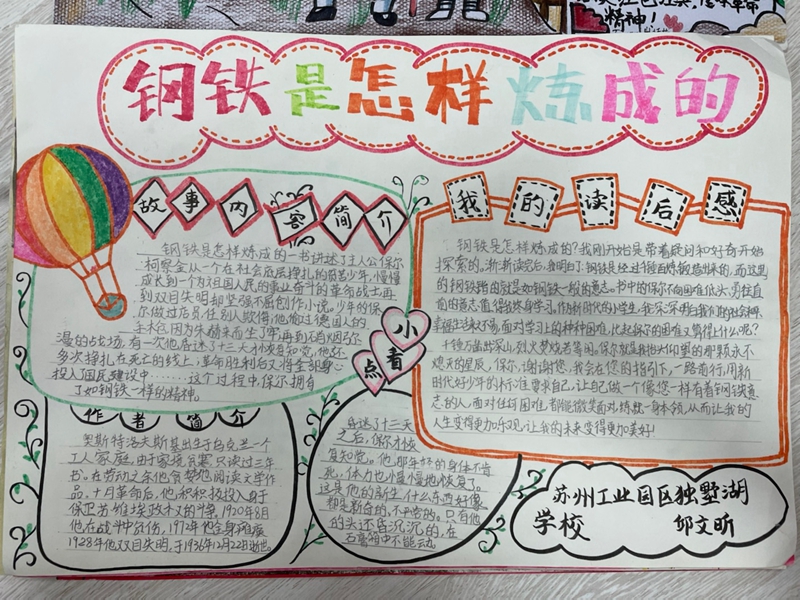 钢铁是怎样炼成的
故事内容简介
钢铁是怎样炼成的一书讲述了主人公保尔
柯察金从一个在社会底层挣扎的贫苦少年,慢慢
成长到一个为祖国人民的事业奋斗的革命战士再
到双目失明却坚强不屈创作小说。少年的保
尔做过伙员,任别人欺侮,他偷过德国人的
手枪,因为朱赫来而生了牢,再到
漫的战场,有一次他昏迷了十三天才恢复知觉,他还
多次挣扎在死亡的线上,革命胜利后又将全部身心
投入国民建设中……这个过程中,保尔拥有
了如钢铁一样的精神。
我的读后感
钢铁是怎样炼成的?我刚开始是带着疑问和好奇开始
探索的。渐渐读完后,我明白了:钢铁是经过千锤百炼锻造出来的,而这里
的钢铁指的就是如钢铁一般的意志。书中的保尔不向困难低头,勇往直
前的意志值得我终身学习。作为新时代的小学生,我深深明白我们的社会和
幸福生活来之不易,面对学习上的种种困难,比起保尔的困难又算得上什么呢?
千锤万凿出深山,烈火焚烧若等闲。保尔就是我抬头仰望的那颗永不
熄灭的星辰,保尔,谢谢您,我会在您的指引下,一路前行,用新
时代好少年的标准要求自己,让自己做一个像您一样有着钢铁意
志的人,面对任何困难都能微笑面对,练就一身本领,从而让我的
人生变得更加乐观,让我的未来变得更加美好!
小看点
昏迷了十三天
之后,保尔才恢
复知觉。他那年轻的身体不肯
死,体力也慢慢地恢复了。
这是他的新生,什么东西好像
都是新奇的,不平凡的。只有他
的头还昏沉沉的,在
石膏箱中不能动。
作者简介
奥斯特洛夫斯基出生于乌克兰一个
工人家庭,由于家境贫寒,只读过三年
书。在劳动之余他贪婪地阅读文学作
品。十月革命后,他积极投入身于
保卫苏维埃政权的斗争,1920年8月
他在战斗中负伤,1927年他全身瘫痪
1928年他双目失明,于1936年12月22日逝世。
苏州工业园区独墅湖
学校 邹文昕